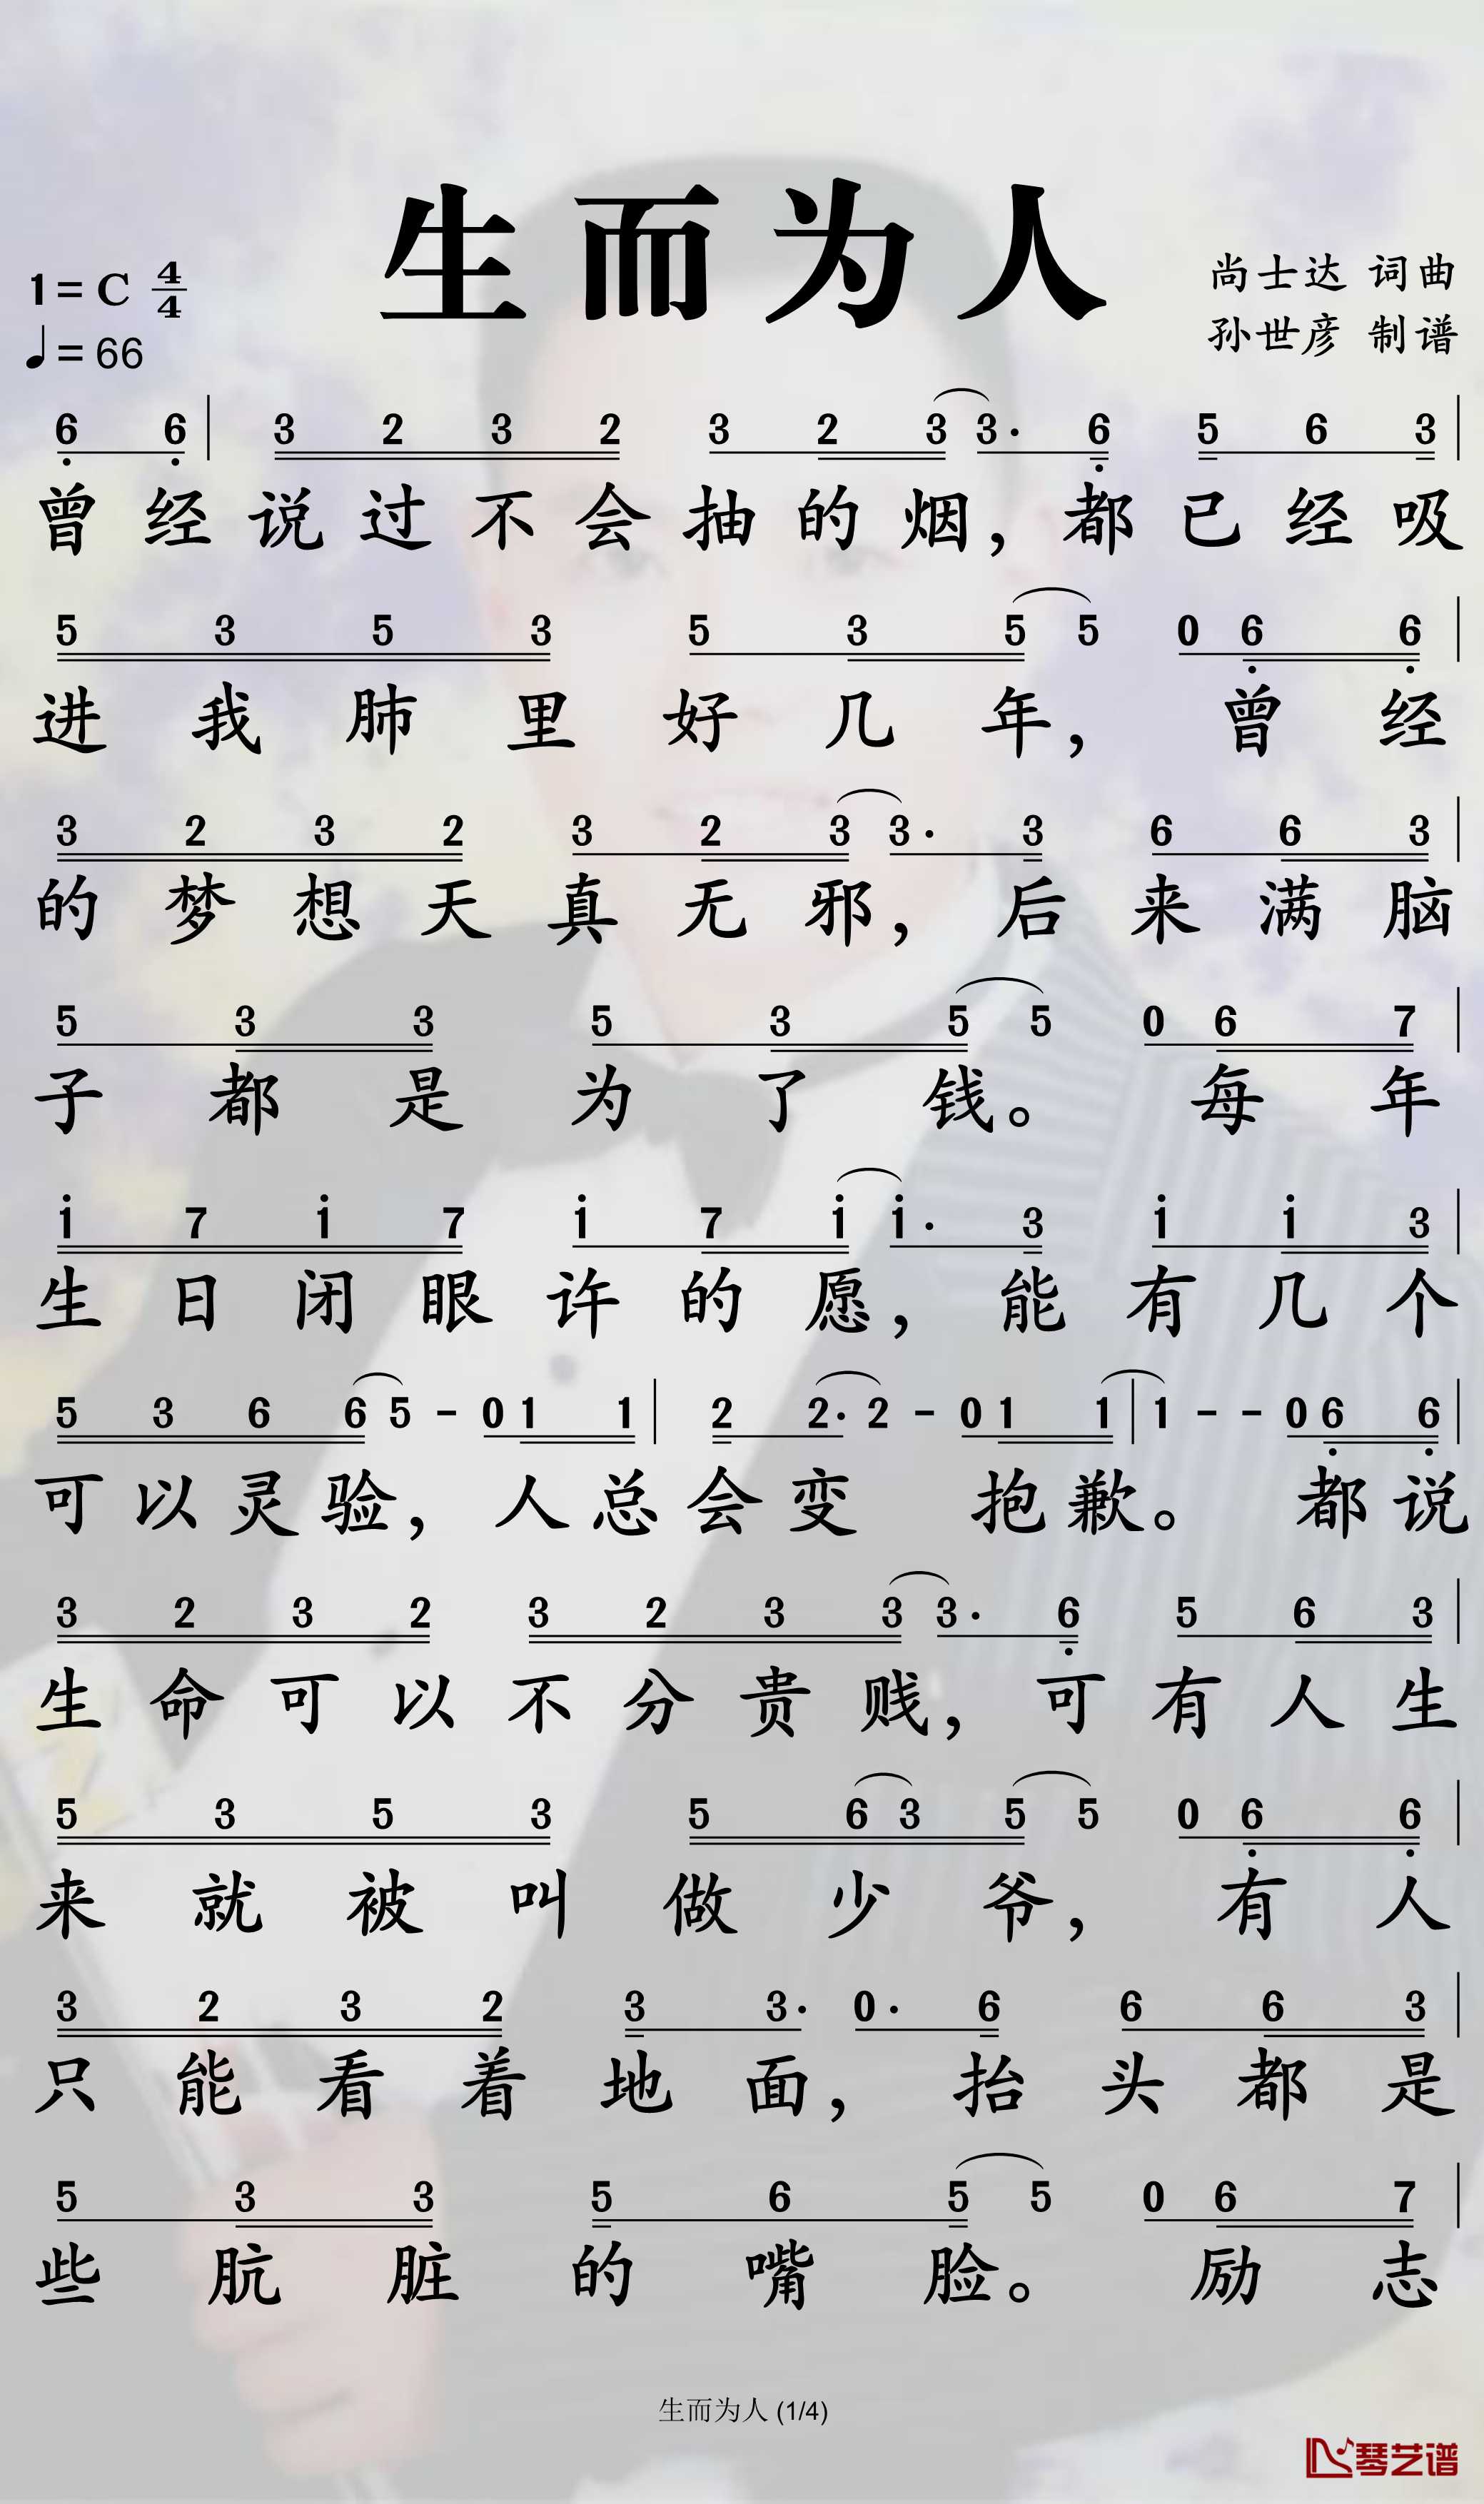 生而为人
1=C 4/4
♩=66
尚士达 词曲
孙世彦 制谱
6 6 | 3 2 3 2 3 2 3 3· 6 5 6 3 |
曾经说过不会抽的烟，都已经吸
5 3 5 3 5 3 5 5 0 6 6 |
进我肺里好几年，曾经
3 2 3 2 3 2 3 3· 3 6 6 3 |
的梦想天真无邪，后来满脑
5 3 3 5 3 5 5 0 6 7 |
子都是为了钱。每年
i 7 i 7 i 7 i i· 3 i i 3 |
生日闭眼许的愿，能有几个
5 3 6 6 5 - 0 1 1 | 2 2· 2 - 0 1 1 | 1 - - 0 6 6 |
可以灵验，人总会变 抱歉。都说
3 2 3 2 3 2 3 3 3· 6 5 6 3 |
生命可以不分贵贱，可有人生
5 3 5 3 5 6 3 5 5 0 6 6 |
来就被叫做少爷，有人
3 2 3 2 3 3· 0· 6 6 6 3 |
只能看着地面，抬头都是
5 3 3 5 6 5 5 0 6 7 |
些肮脏的嘴脸。励志
生而为人 (1/4)
琴艺谱